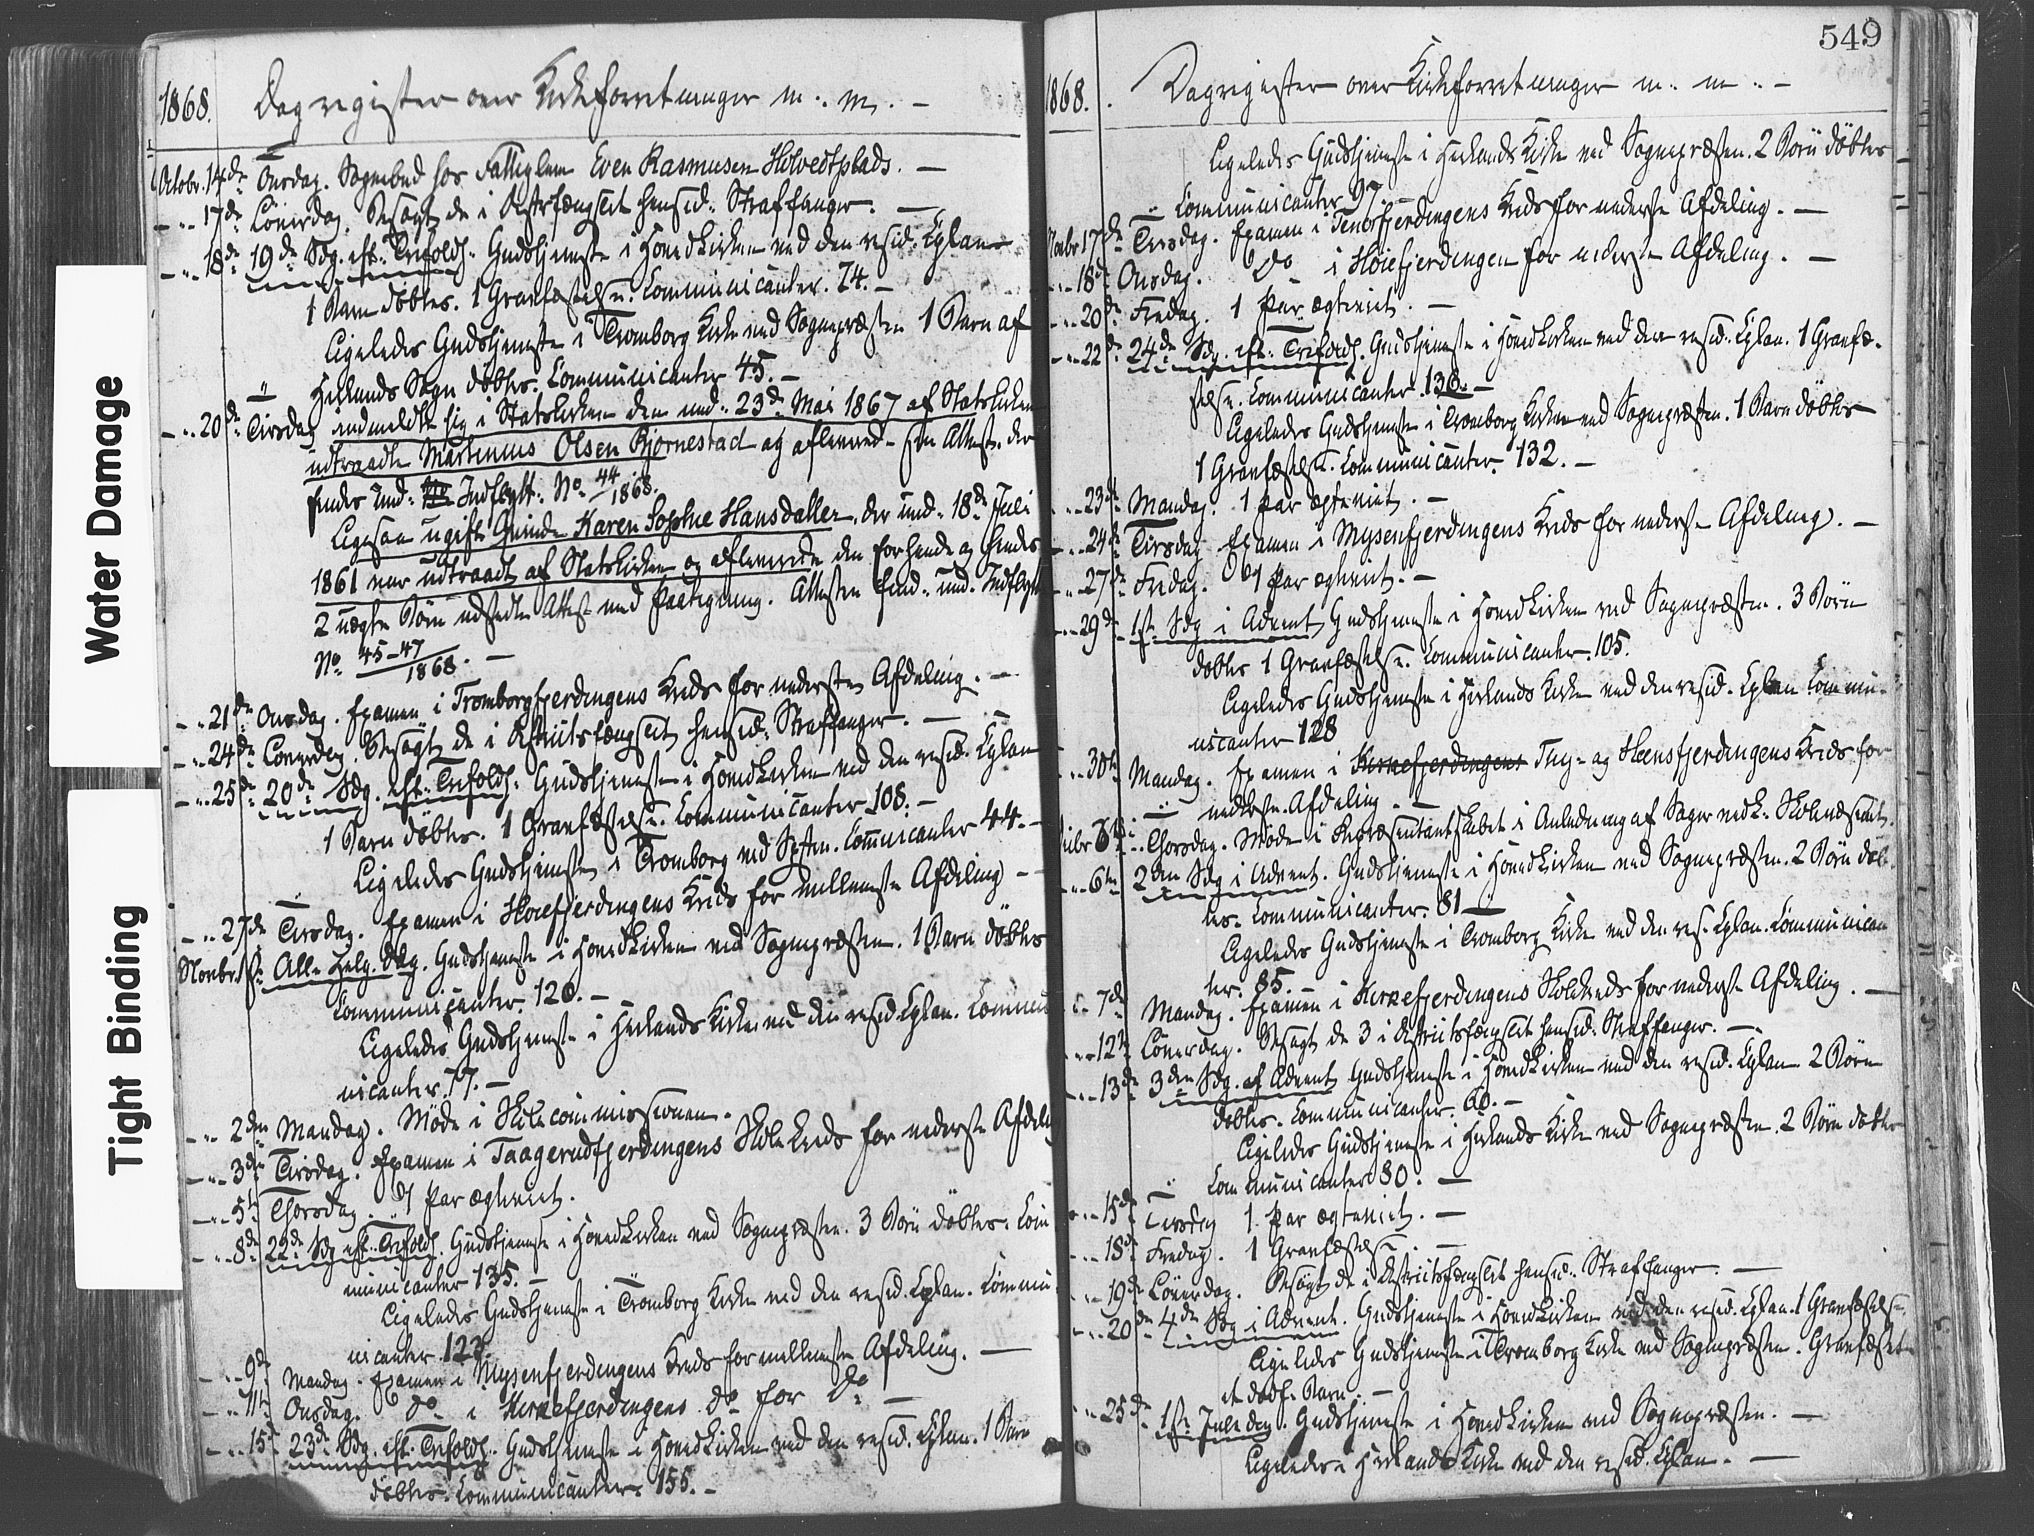 Water Damage
Tight Binding
1868. Dagregister over Kirkeforretninger m. m. —
Octobr. 14de Onsdag. Sognebud hos Fattiglem Even Rasmusen Holvedtplads. —
— " 17de Löverdag. Besögt de i Distrfængslet hensid. Straffanger. —
— " 18de 19de Sdg. eft. Trefoldh. Gudstjeneste i Hovedkirken ved den resid. Cplan
1 Barn döbtes. 1 Gravfæstelse. Communicanter. 74. —
Ligeledes Gudstjeneste i Tromborg Kirke ved Sognepræsten 1 Barn af
Herlands Sogn döbtes. Communicanter 45. —
— " 20de Tirsdag indmeldte sig i Statskirken den und. 23de Mai 1867 af Statskirken
udtraadte Martinius Olsen Bjørnestad og afleverede sin Attest der
findes und. Indflytt. No. 44/1868.
Ligesaa ugift Qvinde Karen Sophie Hansdatter, der und. 18de Juli
1861 var udtraadt af Statskirken og afleverede den for hende og hendes
2 uægte Børn udstedte Attest med Paategning. Attesten find. und. Indflytt
No. 45-47/1868. —
— " 21de Onsdag. Examen i Tromborgfjerdingens Kreds for nederste Afdeling. —
— " 24de Löverdag. Besögt de i Distriktsfængslet hensid. Straffanger. —
— " 25de 20de Sdg. eft. Trefoldh. Gudstjeneste i Hovedkirken ved den resid. Cplan
1 Barn döbtes. 1 Gravfæstelse. Communicanter 108. —
Ligeledes Gudstjenesten i Tromborg ved Spsten. Communicanter 44. —
— " 27de Tirsdag. Examen i Høiefjerdingens Kreds for mellemste Afdeling —
Novbr. 1ste Alle Helg. Dag. Gudstjeneste i Hovedkirken ved Sognepræsten. 1 Barn döbtes
Communicanter. 120. —
Ligeledes Gudstjeneste i Herlands Kirke ved den resid Cplan. Commu
nicanter. 77. —
— " 2den Mandag. Møde i Skolecommissionen.
— " 3die Tirsdag. Examen i Taagerudfjerdingens Skole Kreds for nederste Afdeling
— " 5te Thorsdag. 1 Par ægteviet.
— " 8de 22de Sdg eft. Trefoldh. Gudstjeneste i Hovedkirken ved Sognepræsten. 3 Börn döbtes. Com
municanter 135. —
Ligeledes Gudstjeneste i Tromborg Kirke ved den resid. Cplan. Commu
nicanter. 123.
— " 9de Mandag. Examen i Mysenfjerdingens Kreds for mellemste Afdeling. —
— " 11te Onsdag. do i Kirkefjerdingens do for do —
— " 15de 23de Sdg. eft. Trefoldh. Gudstjeneste i Hovedkirken ved den resid. Cplan. 1 Barn
döbtes. Communicanter 155. —
549
1868. Dagregister over Kirkeforretninger m. m. —
Ligeledes Gudstjeneste i Herlands Kirke ved Sognepræsten. 2 Börn döbtes
Communicanter 97. —
Novbr 17de Tirsdag. Examen i Tenorfjerdingens Kreds for nederste Afdeling. —
— " 18de Onsdag. Do i Høiefjerdingen for nederste Afdeling. —
— " 20de Fredag. 1 Par ægteviet. —
— " 22de 24de Sdg. eft. Trefoldh. Gudstjeneste i Hovedkirken ved den resid. Cplan. 1 Gravfæ-
stelse. Communicanter. 136. —
Ligeledes Gudstjeneste i Tromborg Kirken ved Sognepræsten. 1 Barn döbtes
1 Gravfæstelse. Communicanter. 132. —
— " 23de Mandag. 1 Par ægteviet. —
— " 24de Tirsdag Examen i Mysenfjerdingens Kreds for nederste Afdeling. —
— " 27de Fredag. 1 Par ægteviet. —
— " 29de 1ste Sdg i Advent Gudstjeneste i Hovedkirken ved Sognepræsten. 3 Börn
döbtes 1 Gravfæstelse. Communicanter. 105.
Ligeledes Gudstjeneste i Herlands Kirke ved den resid. Cplan Commu-
nicanter 128
— " 30te Mandag. Examen i Kirkefjerdingens Thy- og Heensfjerdingens Kreds for
nederste Afdeling. —
Thorsdag. Møde i Repræsentantskabet i Anledning af Sager vedk. Skolevæsenet.
— " 6te 2den Sdg i Advent. Gudstjeneste i Hovedkirken ved Sognepræsten. 2 Börn döb-
tes. Communicanter. 81 —
Ligeledes Gudstjeneste i Tromborg Kirke ved den res. Cplan. Communican
ter. 85.
— " 7de Mandag. Examen i Kirkefjerdingens Skolekreds for nederste Afdeling. —
— " 12te Löverdag. Besögt de 3 i Distriktsfængslet hensid. Straffanger. —
— " 13de 3die Sdg. af Advent Gudstjeneste i Hovedkirken ved den resid. Cplan 2 Börn
döbtes. Communicanter. 60. —
Ligeledes Gudstjeneste i Herlands Kirke ved Sognepræsten. 2 Börn döbtes
Communicanter 80. —
— " 15de Tirsdag 1 Par ægteviet. —
— " 18de Fredag. 1 Gravfæstelse. —
— " 19de Löverdag. Besögt de i Distriktsfængslet hensid. Straffanger. —
— " 20de 4de Sdg i Advent. Gudstjeneste i Hovedkirken ved den resid. Cplan. 1 Gravfæstelse.
Ligeledes Gudstjeneste i Tromborg Kirke ved Sognepræsten. Gravfæstet
et dødf. Barn. —
— " 25de 1ste Juledag. Gudstjeneste i Hovedkirken ved Sognepræsten. —
Ligeledes i Herlands Kirke ved den resid. Cplan. —